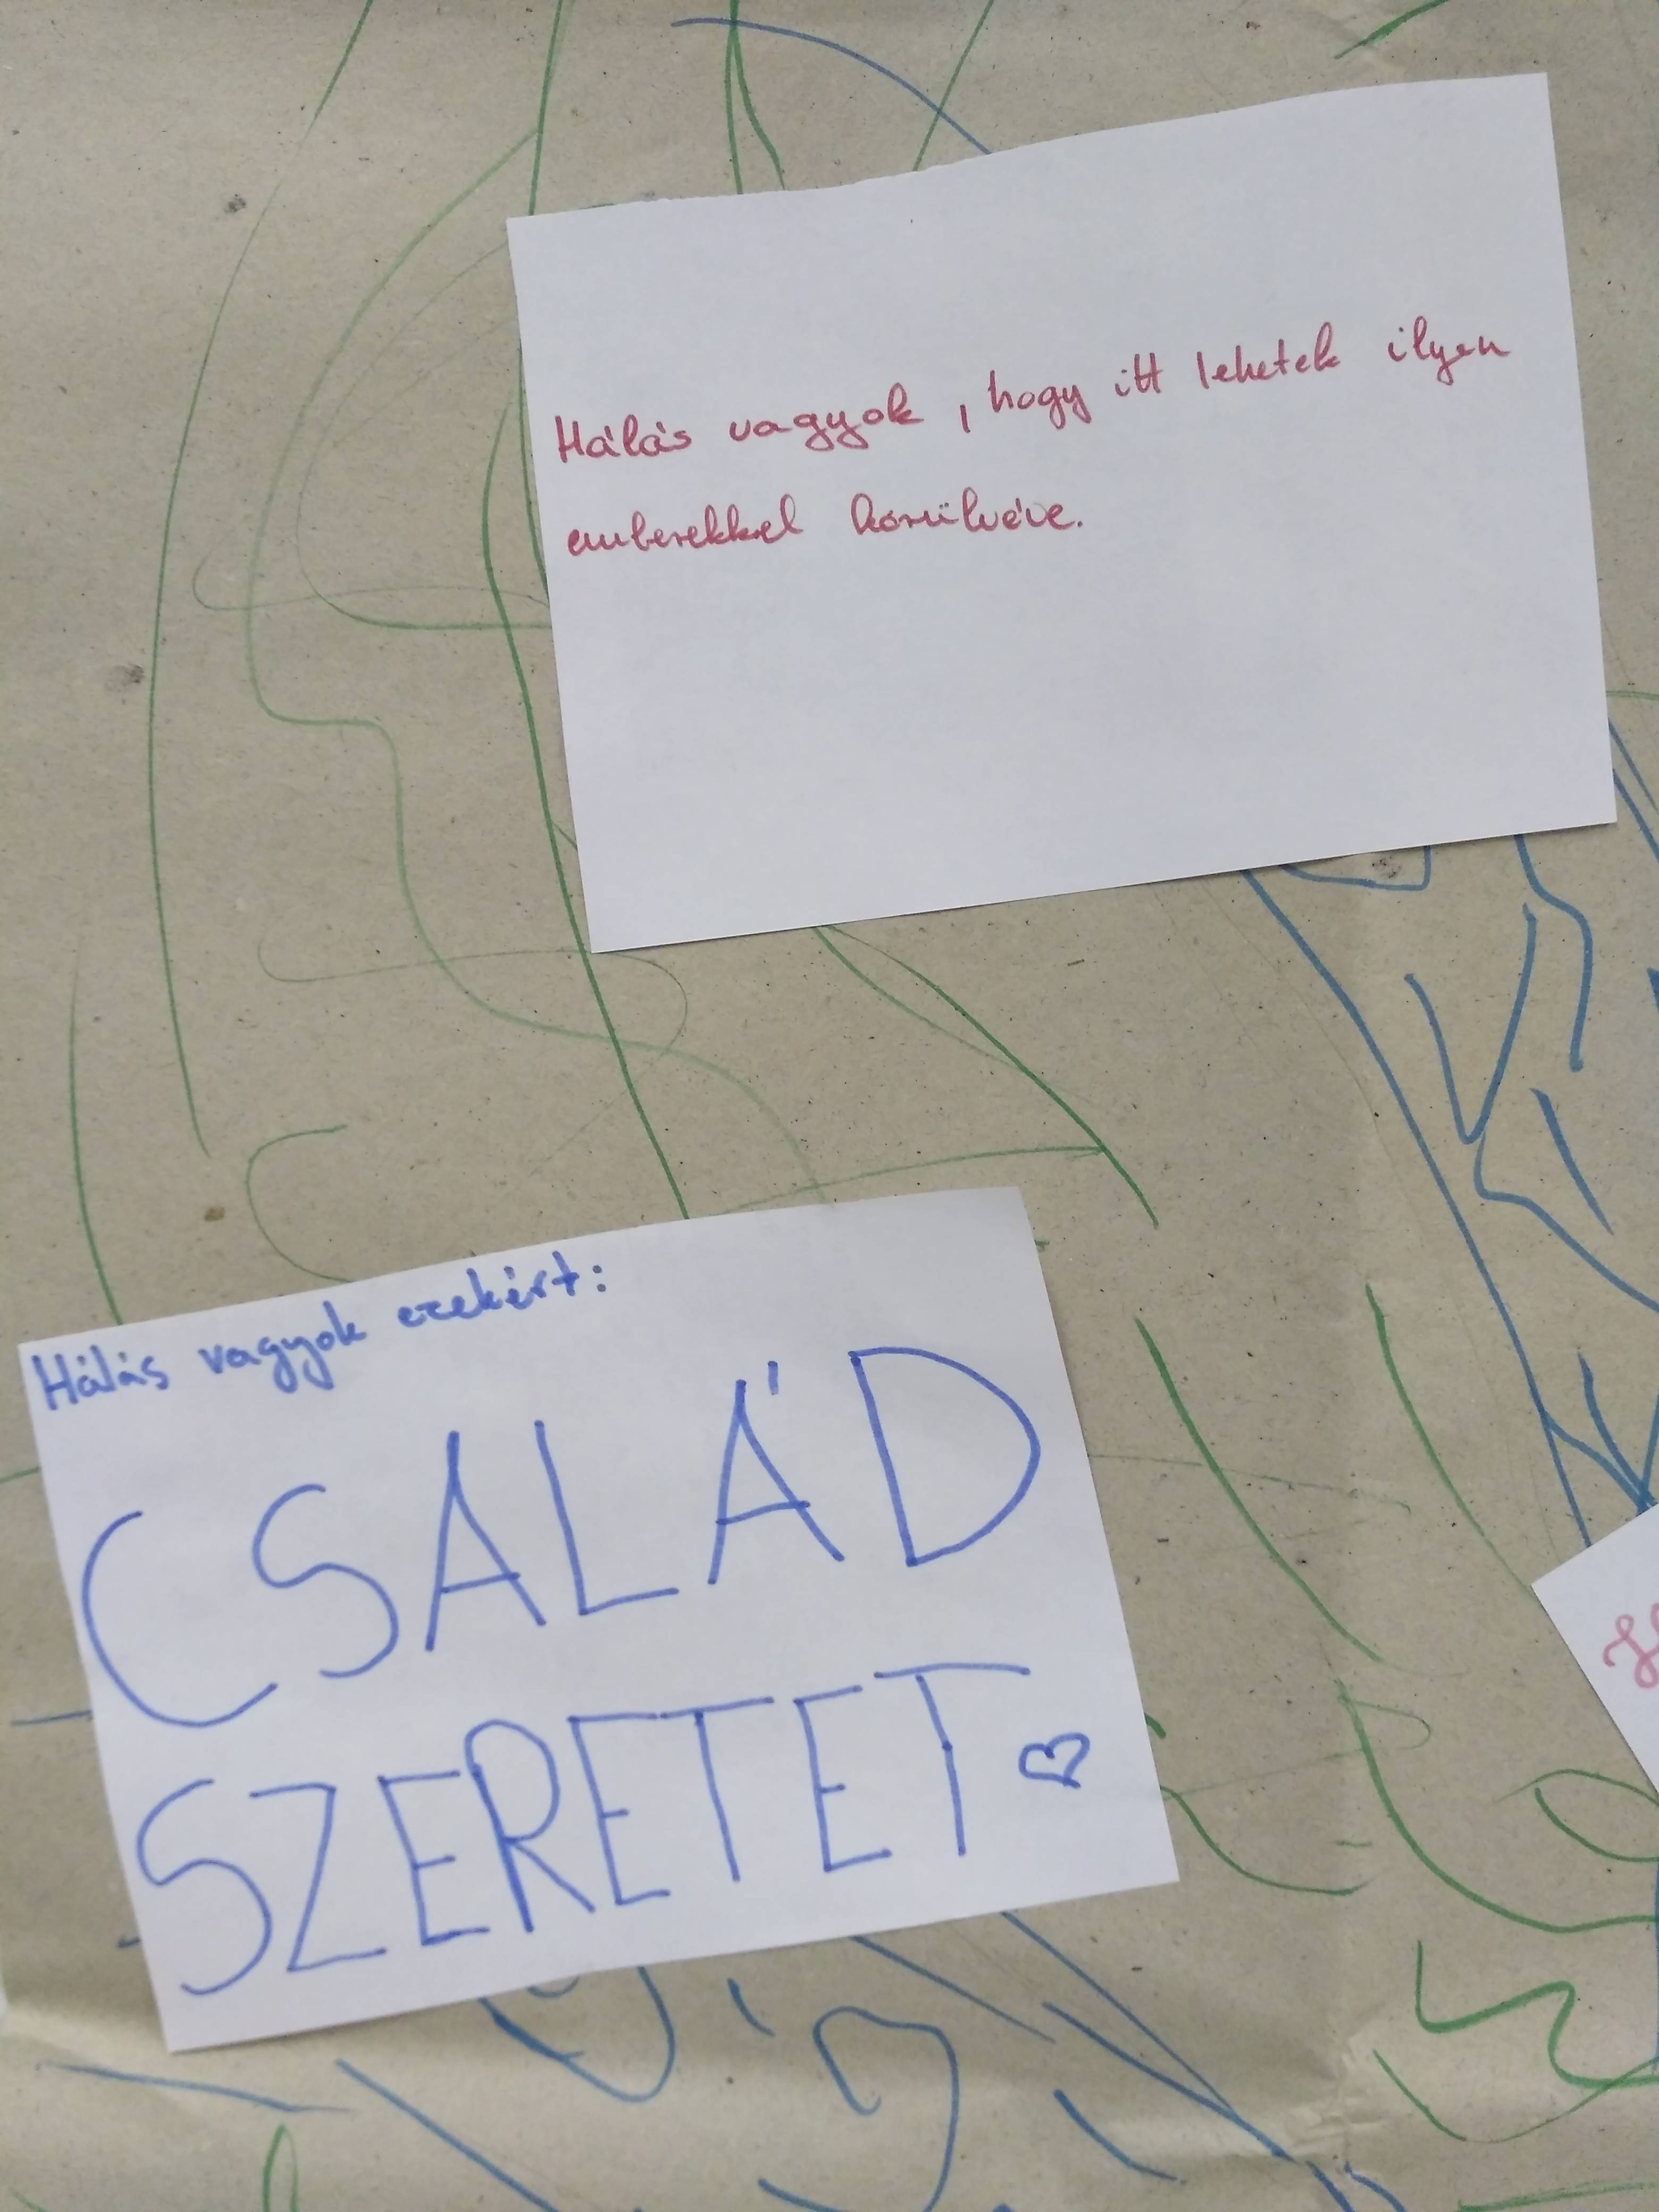 Hálás vagyok, hogy itt lehetek ilyen
emberekkel körülvéve.
Hálás vagyok ezekért:
CSALÁD
SZERETET ♡